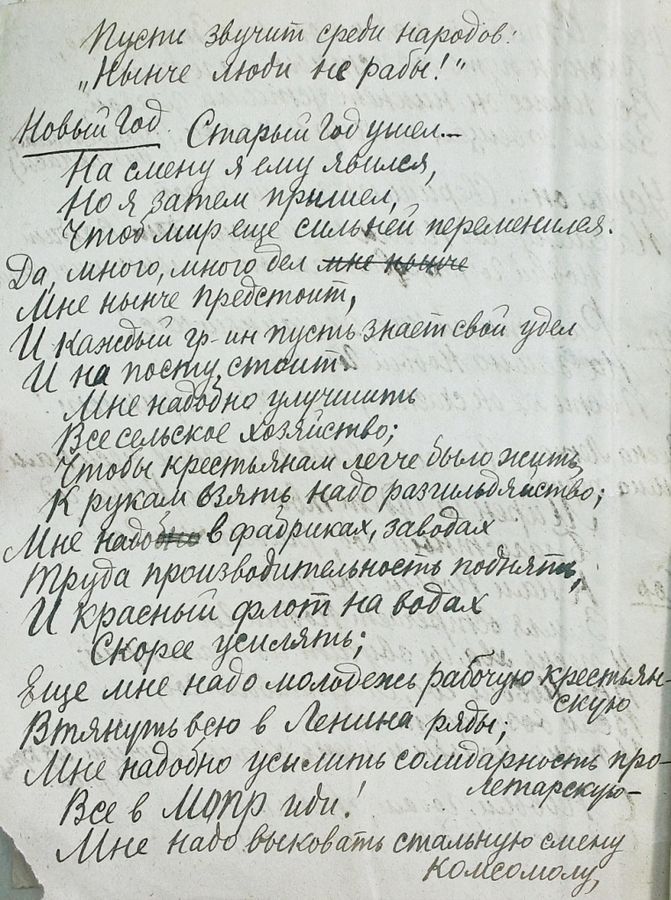 Пусть звучит среди народов:
„Нынче люди не рабы!"
Новый Год. Старый Год ушел...
На смену я ему явился,
Но я затем пришел,
Чтоб мир еще сильней переменился.
Да, много, много дел мне нынче
Мне нынче предстоит,
И каждый гр-ин пусть знает свой удел
И на посту стоит.
Мне надобно улучшить
Все сельское хозяйство;
Чтобы крестьянам легче было жить,
К рукам взять надо разгильдяйство;
Мне надобно в фабриках, заводах
Труда производительность поднять,
И красный флот на водах
Скорее усилять;
Еще мне надо молодежь рабочую крестьян-
скую
Втянуть всю в Ленина ряды;
Мне надобно усилить солидарность про-
летарскую-
Все в Мопр иди!
Мне надо выковать стальную смену
комсомолу,